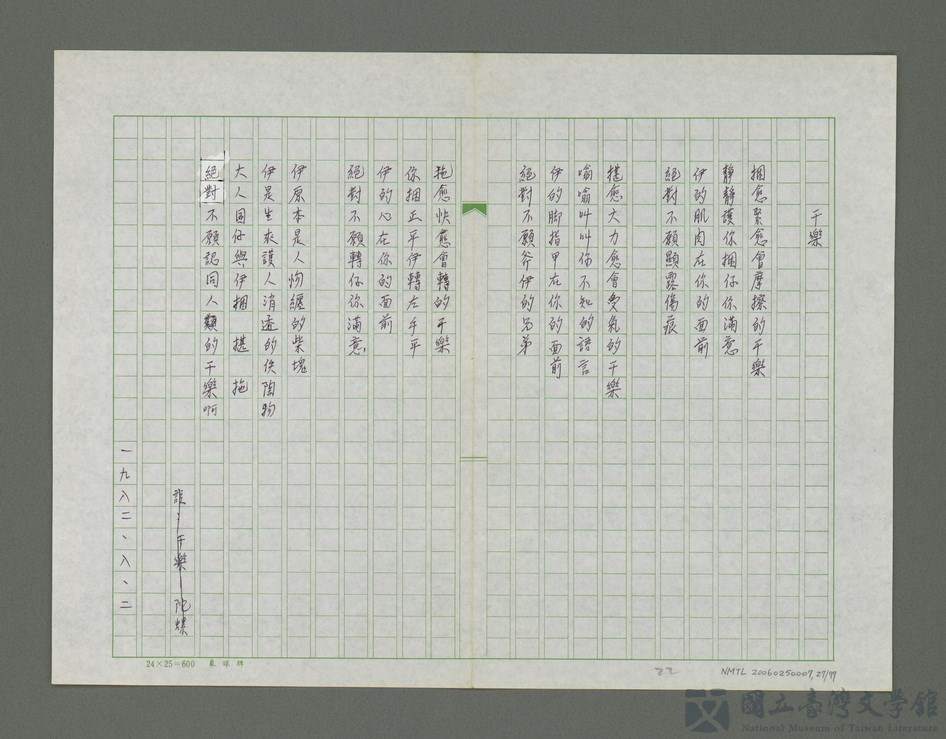 干樂
捆愈緊愈會摩擦的干樂
靜靜護你捆仔你滿意
伊的肌肉在你的面前
絕對不願顯露傷痕
摃愈大力愈會受氣的干樂
嗡嗡叫叫你不知的語言
伊的脚指甲在你的面前
絕對不願斧伊的兄弟
拖愈快愈會轉的干樂
你捆正平伊轉左手平
伊的心在你的面前
絕對不願轉仔你滿意
伊原本是人 纏的柴塊
伊是生來護人消遣的佚陶物
大人囡仔與伊捆 摃 拖
絕對不願認同人類的干樂啊
註：干樂—陀螺
一九八二、八、二
24×25=600
22
NMTL 20060250007, 27/77
國立臺灣文學館
National Museum of Taiwan Literature